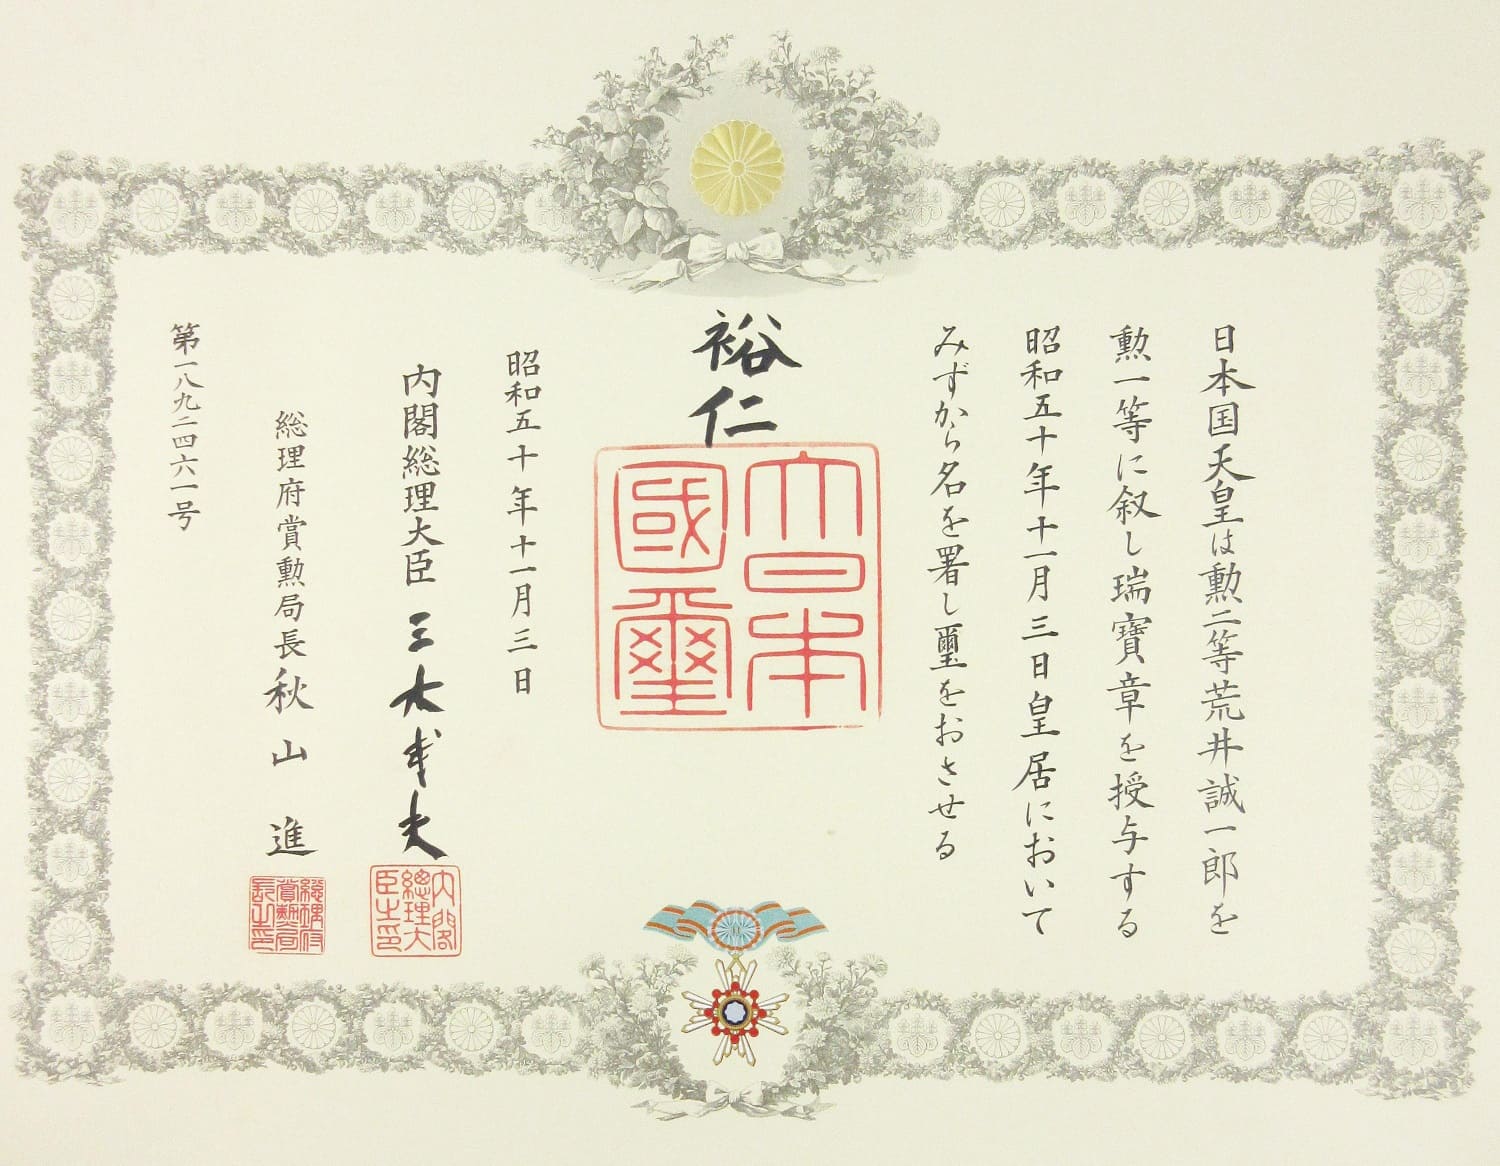 日本国天皇は勲二等荒井誠一郎を
勲一等に叙し瑞寶章を授与する
昭和五十年十一月三日皇居において
みずから名を署し璽をおさせる
裕仁
大日本國璽
昭和五十年十一月三日
内閣総理大臣 三木武夫
内閣総理大臣之印
総理府賞勲局長 秋山 進
総理府賞勲局長之印
第一八九二四六一号